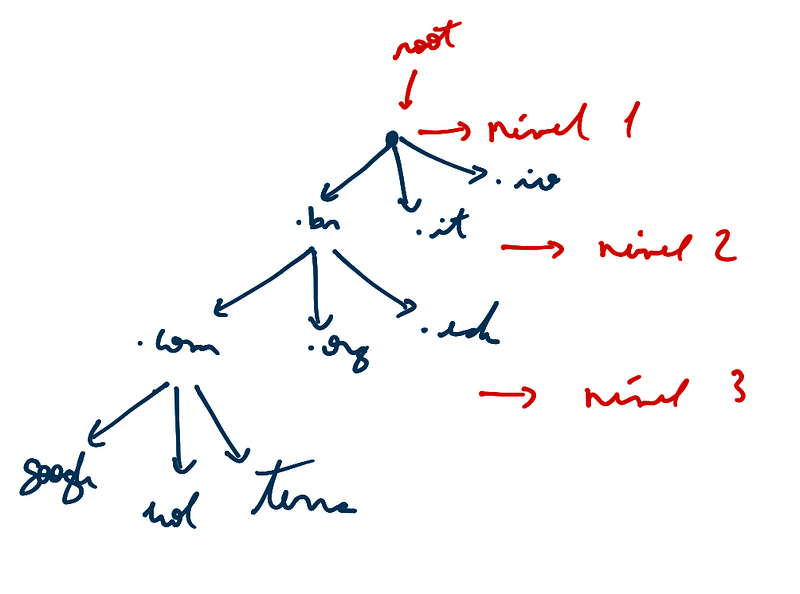 root
nível 1
.br
.it
.io
nível 2
.com
.org
.edu
nível 3
google
uol
terra